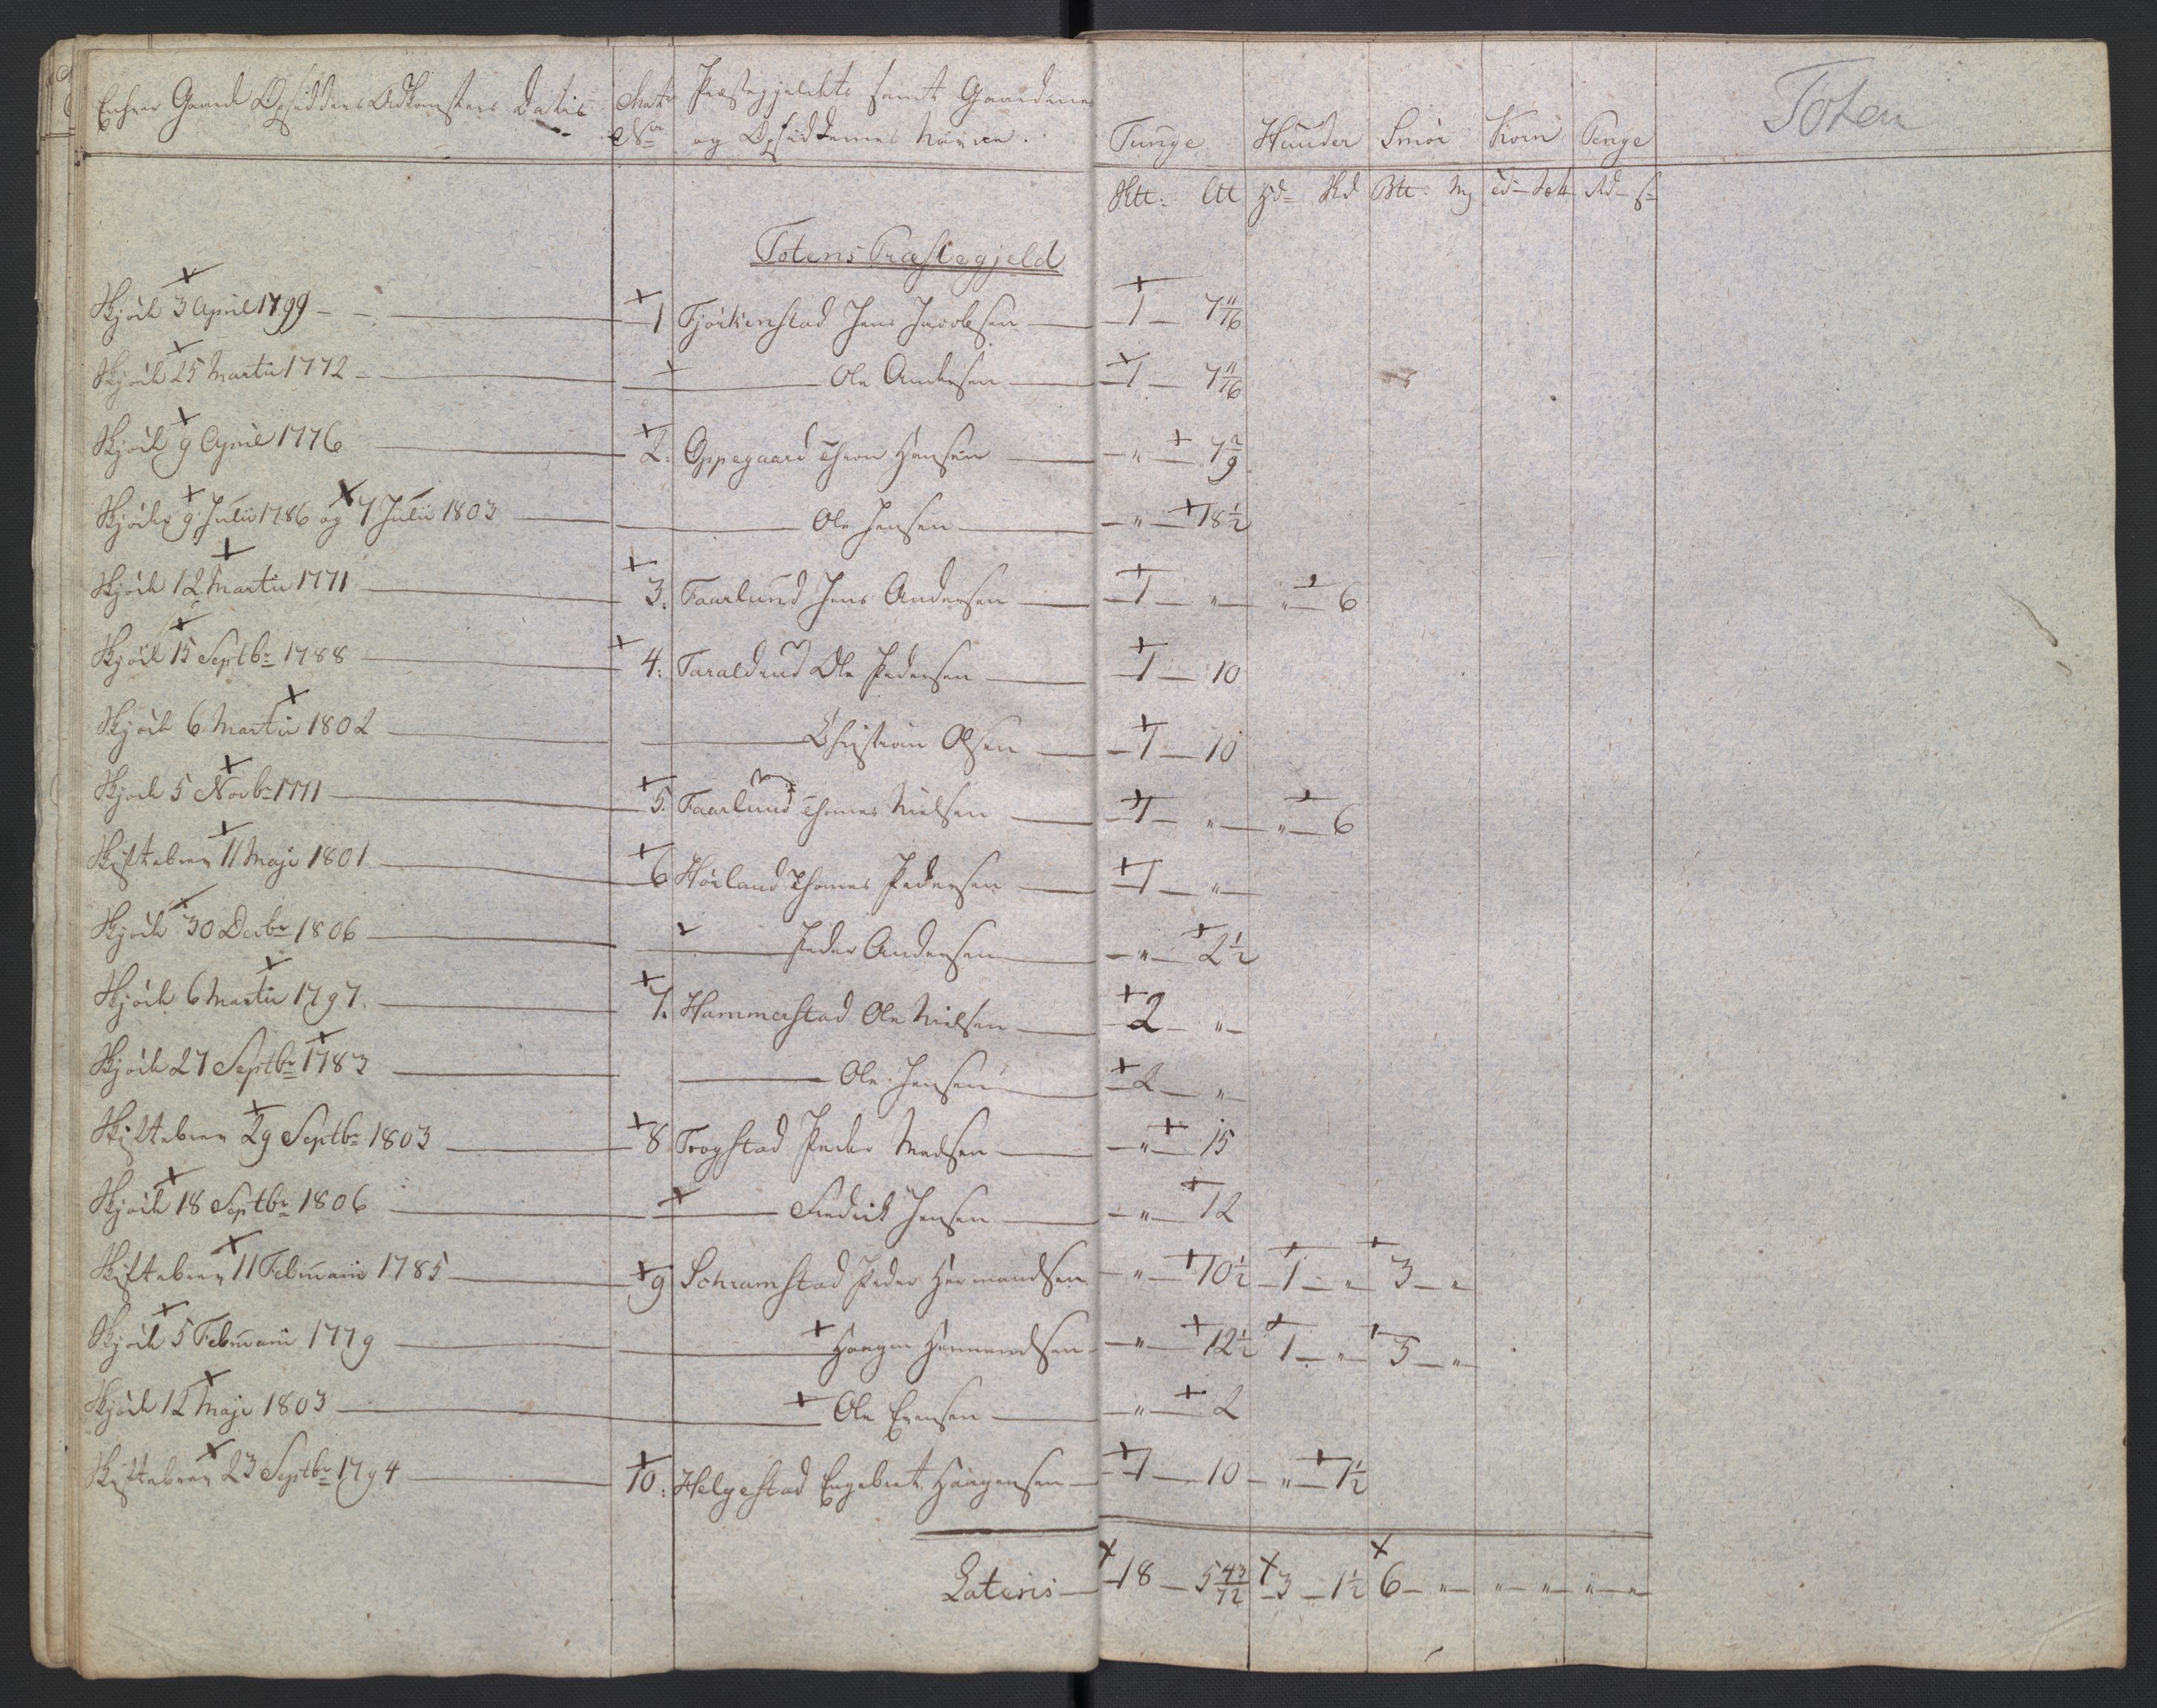 Enhver Gaards Opsidders Adkomsters Datis
Matr No
Præstegjeldets samt Gaardenes
og Opsiddernes Navne.
Tunge Huuder Smör Korn Penge
Toten
Totens Præstegjeld
Skjöde 3 April 1799 1 Fjöikenstad Jens Jacobsen 1 7 11/16
Skjöde 25 Martii 1772 Ole Andersen 1 7 11/16
Skjöde 9 April 1776 2. Oppegaard Thron Hansen " 7 2/9
Skjöder 9 Julii 1786 og 7 Julii 1803 Ole Jensen " 18 1/2
Skjöde 12 Martii 1771 3. Faarlund Jens Andersen 1 " " 6
Skjöde 15 Septbr 1788 4: Taraldrud Ole Pedersen 1 10
Skjöde 6 Martii 1802 Christian Olsen 1 10
Skjöde 5 Novbr 1771 5. Faarlund Thomes Nielsen 1 " " 6
Skiftebrev 11 Maji 1801 6 Höiland Thomes Pedersen 1 "
Skjöde 30 Decbr 1806 Peder Andersen " 2 1/2
Skjöde 6 Martii 1797. 7. Hammerstad Ole Nielsen 2 "
Skjöde 27 Septbr 1783 Ole Jensen 2 "
Skiftebrev 29 Septbr 1803 8 Trogstad Peder Madsen " 15
Skjöde 18 Septbr 1806 Fredrik Jensen " 12
Skiftebrev 11 Februarii 1785 9 Schramstad Peder Hermandsen " 10 1/2 1 " 3 "
Skjöde 5 Februarii 1779 Haagen Hermandsen " 12 1/2 1 " 3 "
Skjöde 12 Maji 1803 Ole Evensen " 2
Skiftebrev 23 Septbr 1794 10: Helgestad Engebret Haagensen 1 10 " 1 1/2
Lateris 18 5 43/72 3 1 1/2 6 " " " " "